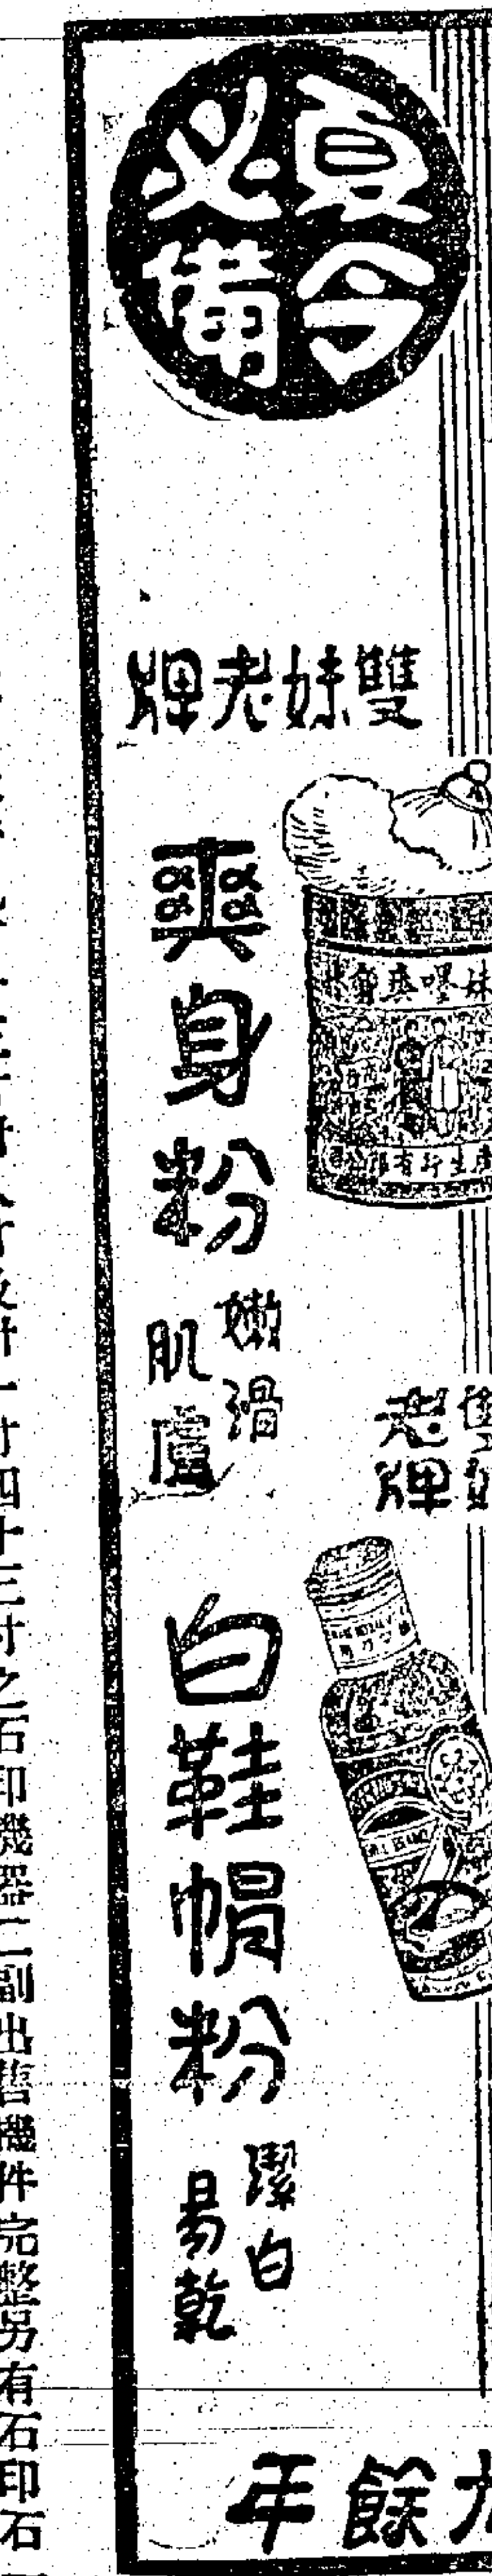 夏令
必備
雙妹老牌
爽身粉
嫩滑
肌膚
雙妹
老牌
白鞋帽粉
潔白
易乾
餘年
四十三寸之石印機器二副出售機件完整另有石印石